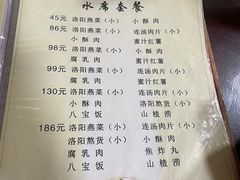 水席套餐
45元 洛阳燕菜(小) 小酥肉
86元 洛阳燕菜(小) 连汤肉片(小)
小酥肉 蜜汁红薯
98元 洛阳燕菜(小) 小酥肉
腐乳肉 蜜汁红薯
99元 洛阳燕菜(小) 连汤肉片(小)
腐乳肉 蜜汁红薯
130元 洛阳燕菜(小) 连汤肉片(小)
小酥肉 洛阳熬货(小)
八宝饭 山楂涝
186元 洛阳燕菜(小) 连汤肉片(小)
洛阳熬货(小) 小酥肉
腐乳肉 焦炸丸
八宝饭 山楂涝